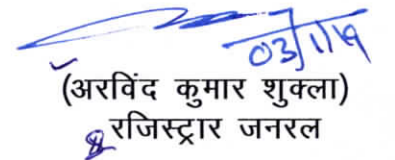 03/1/19
(अरविंद कुमार शुक्ला)
रजिस्ट्रार जनरल